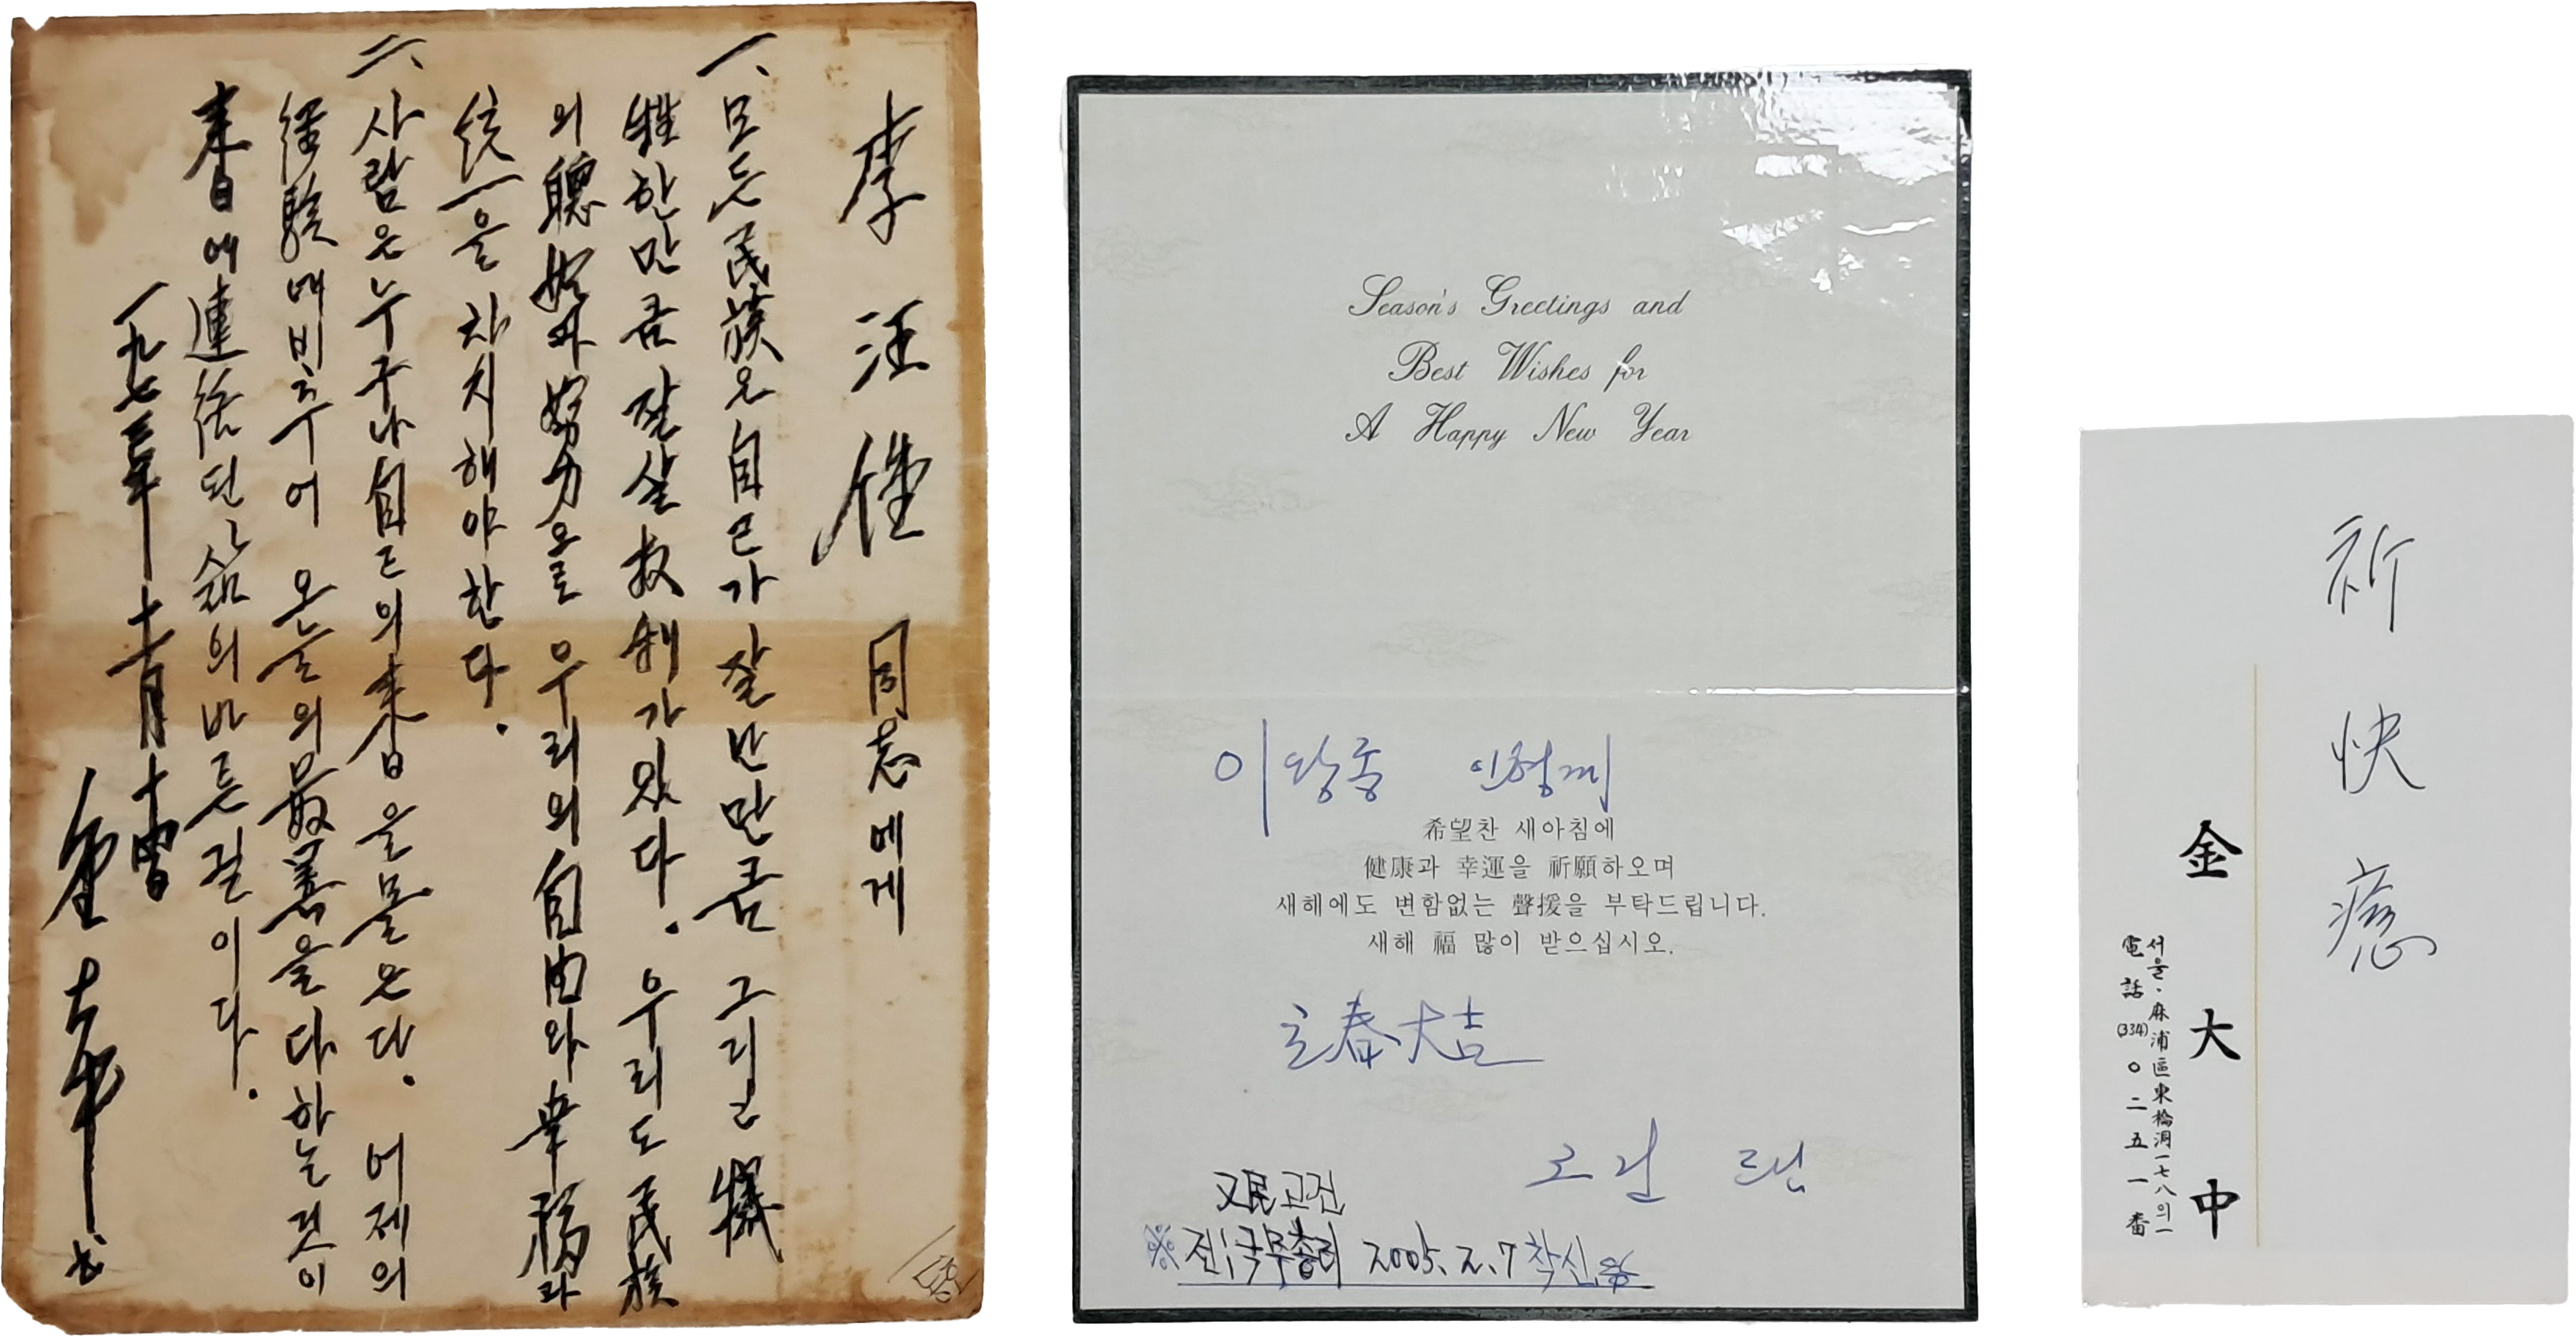 李 汪 同志에게
一、모든 民族은 自己가 잘난만큼 그리고 犧
牲한만큼 잘살 가 있다. 우리도 民族
의 聰明과 努力으로 우리의 自由와 幸福과
統一을 차지해야 한다.
二、사람은 누구나 自己의 来日을 모른다. 어제의
經驗에 비추어 오늘의 最善을 다하는 것이
来日에 連結된 삶의 바른길이다.
一九七三年 十一月 十四日
金大中 书
Season's Greetings and
Best Wishes for
A Happy New Year
이왕종 인형께
希望찬 새아침에
健康과 幸運을 祈願하오며
새해에도 변함없는 聲援을 부탁드립니다.
새해 福 많이 받으십시오.
立春大吉
고건 드림
又民 고건
※ 전;국무총리 2005. 2. 7 착신 ※
祈快癒
金大中
서울·麻浦區東橋洞一七八의一
電話(334)〇二五一番